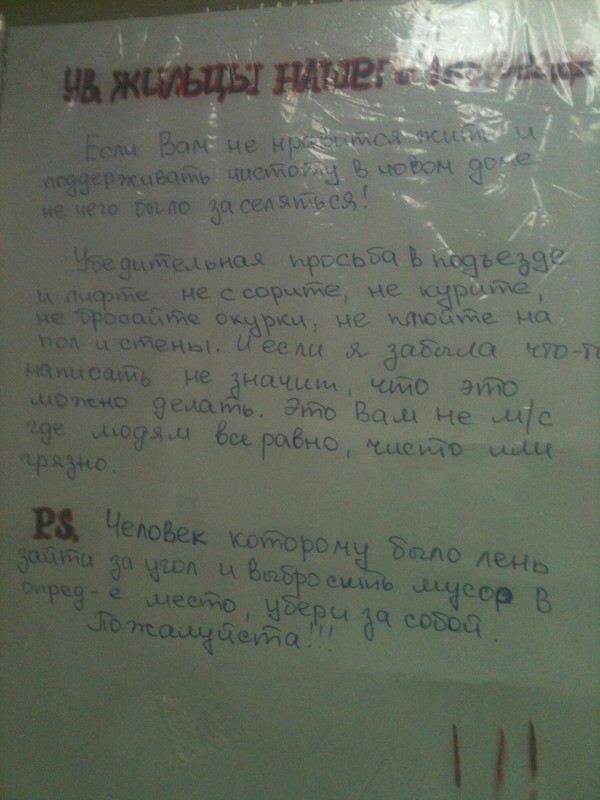 УВ. ЖИЛЬЦЫ НАШЕГО
Если Вам не нравится жить и
поддерживать чистоту в новом доме
не чего было заселяться!
Убедительная просьба в подъезде
и лифте не сорите, не курите,
не бросайте окурки, не плюйте на
пол и стены. И если я забыла что-то
написать не значит, что это
можно делать. Это Вам не м/с
где людям все равно, чисто или
грязно.
P.S. Человек которому было лень
зайти за угол и выбросить мусор в
опред-е место, убери за собой.
Пожалуйста!!!
!!!